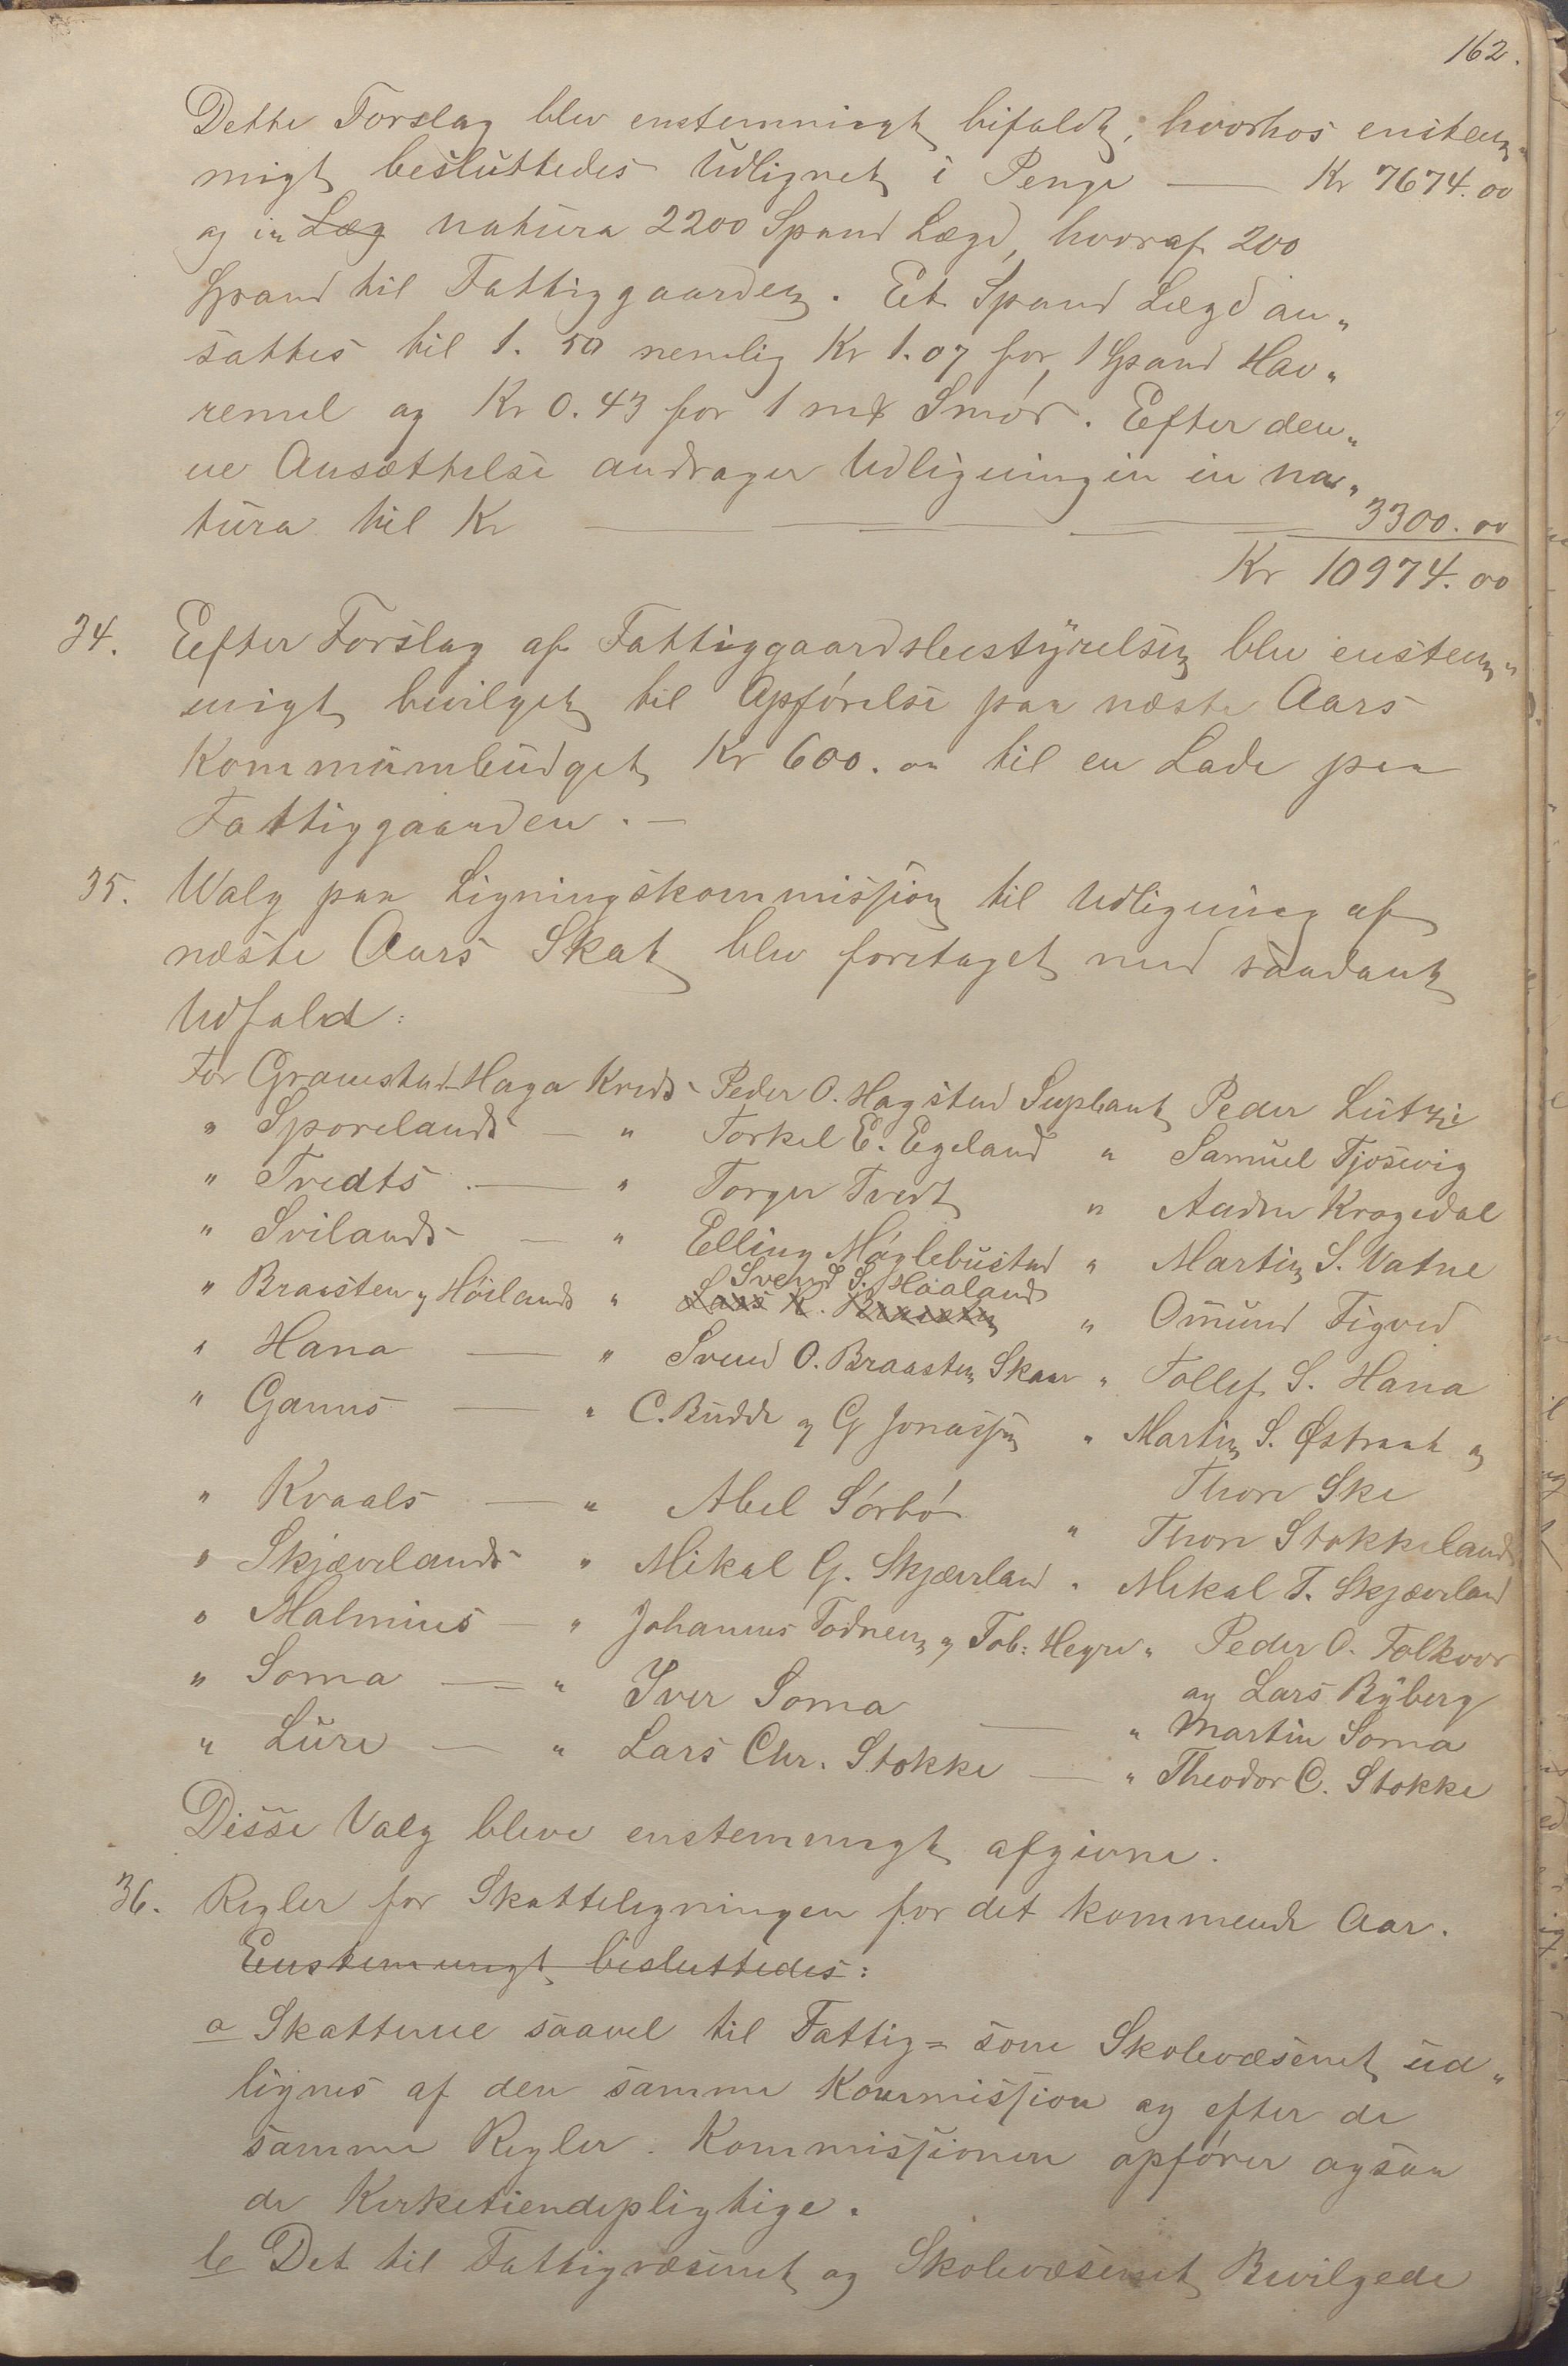 162.
Dette Forslag blev enstemmigt bifaldt, hvorhos enstem„
migt besluttedes Udlignet i Penge — Kr 7674.00
og in Læg natura 2200 Spand Lægd, hvoraf 200
Spand til Fattiggaarden. Et Spand Lægd an„
sattes til 1.50 nemlig Kr 1.07 for 1 Spand Hav„
remel og Kr 0.43 for 1 mk Smør. Efter den„
ne Ansættelse andrager Udligningen in na„
tura til Kr — — — — 3300.00
Kr 10974.00
34. Efter Forslag af Fattiggaardsbestyrelsen blev enstem„
migt bevilget til Opførelse paa næste Aars
Kommunebudget Kr 600.00 til en Lade paa
Fattiggaarden.—
35. Valg paa Ligningskommission til Udligning af
næste Aars Skat blev foretaget med saadant
Udfald:
For Gramstad-Haga Kreds Peder O. Hogstad Supleant Peder Lutsi
" Sporelands — " Torkel E. Egeland " Samuel Tjosevig
" Tvedts — " Torger Tvedt " Auden Kragedal
" Svilands — " Elling Møglebustad " Martin S. Vatne
Svend S. Høaland
" Braasten og Høilands " Lars K. Braasten " Omund Figved
" Hana — " Svend O. Braasten Skaar " Tollef S. Hana
" Ganns — " C. Budde og G Jonassen " Martin S. Østraat og
Thore Ske
" Kvaals — " Abel Sørbø " Thore Stokkeland
" Skjævelands " Mikal G. Skjæveland " Mikal T. Skjæveland
" Malmins — " Johannes Todnem og Tob: Heyre " Peder O. Folkvor
og Lars Ryberg
" Soma — " Iver Soma — " Martin Soma
" Lure — " Lars Chr. Stokke — " Theodor C. Stokke
Disse Valg bleve enstemmigt afgivne.
36. Regler for Skatteligningen for det kommende Aar.
Enstemmigt besluttedes:
a Skatterne saavel til Fattig= som Skolevæsenet ud„
lignes af den samme Kommission og efter de
samme Regler. Kommissionen opfører ogsaa
de Kirketiendepligtige.
b Det til Fattigvæsenet og Skolevæsenet Bevilgede